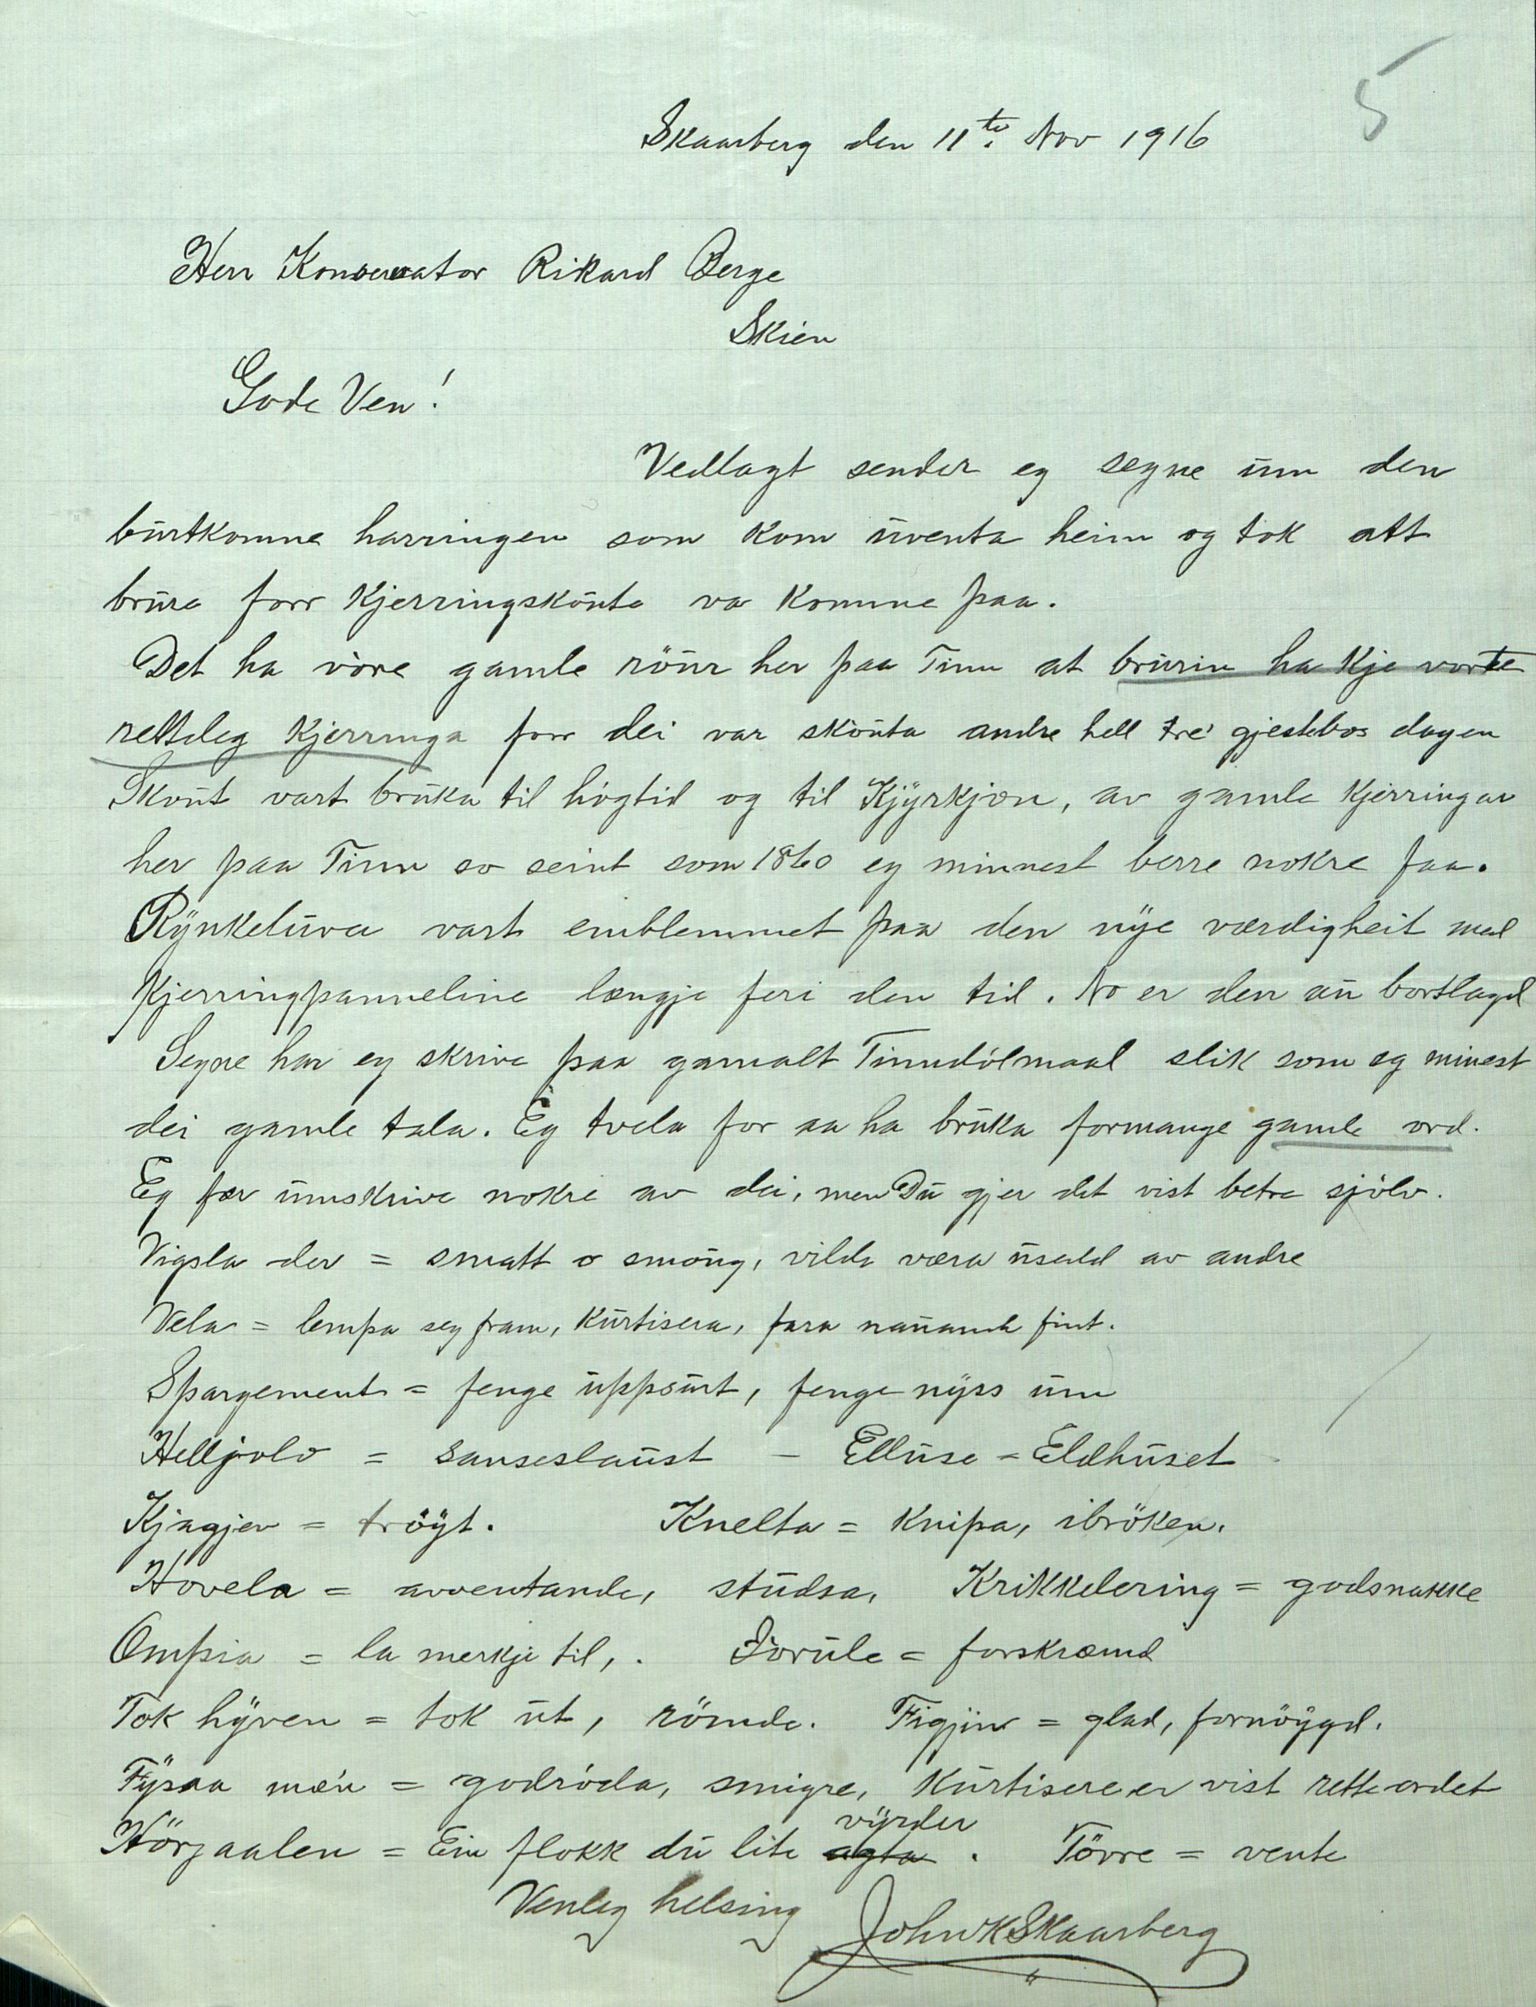 5
Skaarberg den 11te Nov 1916
Herr Konservator Rikard Berge
Skien
Gode Ven!
Vedlagt sender eg segne um den
burtkomne harringen som kom uventa heim og tok att
brura forr kjerringskönta va komne paa.
Det ha vöre gamle röur her paa Tinn at brurin ha kje vorte
retteleg kjerringa forr dei var sköuta andre hell tre' gjestebos dagen
Skout vart bruka til högtid og til Kjyrkjon, av gamle kjerringar
her paa Tinn so seint som 1860 eg minnest berre nokre faa.
Rynkeluva vart emblemmet paa den nye værdigheit med
kjerringpanneline længje feri den tid. No er den au bortlagd
Segne har eg skrive paa gamalt Tinndölmaal slik som eg minest
dei gamle tala. Eg tvela for aa ha bruka formange gamle ord.
Eg fær umskrive nokre av dei, men Du gjer det vist betre sjölv.
Vigsla der = smatt o smöug, vilde væra usedd av andre
Vela = lempa seg fram, kurtisera, fara nauande fint.
Spargement = fenge uppsurt, fenge nyss um
Helljolv = sanseslaust – Elluse = Eldhuset
Kjagjer = tröyt. Knelta = knipa, ibröken.
Hovela = avventande, studsa, Krikkelering = godsnakke
Ompia = la merkje til, . Jorule = forskræmd
Tok hyven = tok ut, römde. Figjin = glad, fornöygd.
Fysaa mæ'n = godröda, smigre, kurtisere er vist rette ordet
Hörjaalen = Ein flokk du lite agta vyrder . Tövre = vente
Venleg helsing John K Skaarberg